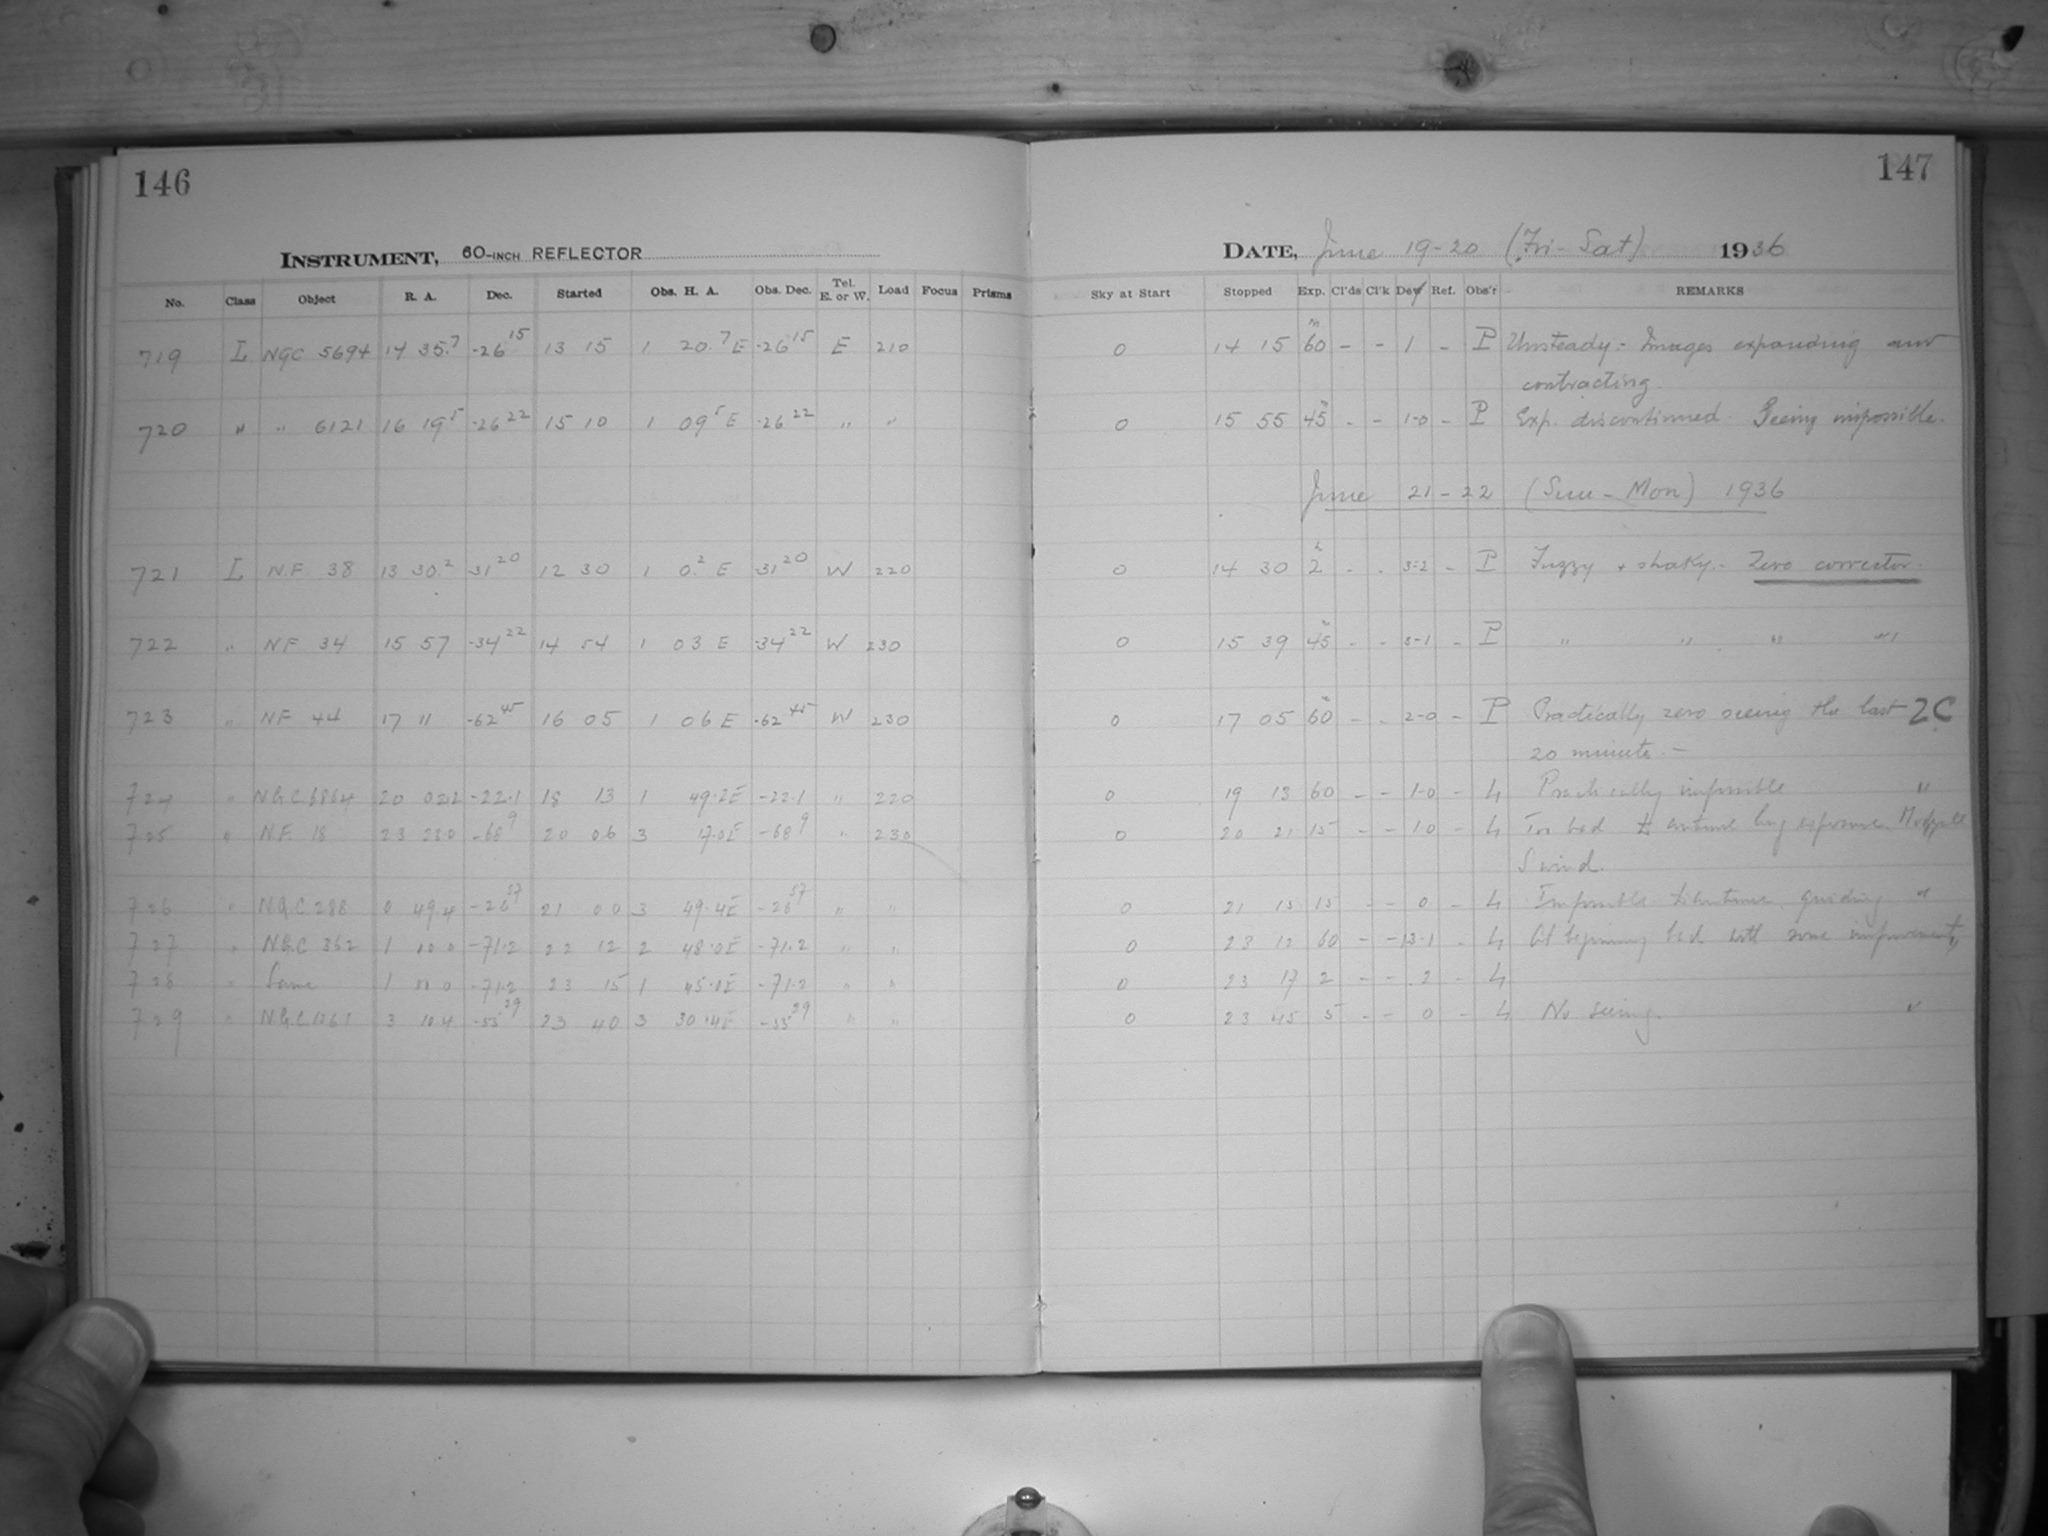 146
147
INSTRUMENT, 60-INCH REFLECTOR
DATE, June 19-20 (Fri-Sat) 1936
No. Class Object R. A. Dec. Started Obs. H. A. Obs. Dec. Tel. E. or W. Load Focus Prisms Sky at Start Stopped Exp. Cl'ds Cl'k Dew Ref. Obs'r REMARKS
719 I NGC 5694 14 35.7 -26 15 13 15 1 20.7 E -26 15 E 210 0 14 15 60 m - - 1 - P Unsteady - Images expanding and
contracting.
720 " " 6121 16 19 5 -26 22 15 10 1 09 5 E -26 22 " " 0 15 55 45 m - - 1-0 - P Exp. discontinued. Seeing impossible.
June 21-22 (Sun-Mon) 1936
721 I N.F. 38 13 30.2 -31 20 12 30 1 0.2 E -31 20 W 220 0 14 30 2 h - - 3-2 - P Fuzzy + shaky. - Zero corrector.
722 " NF 34 15 57 -34 22 14 54 1 03 E -34 22 W 230 0 15 39 45 m - - - P " " " "
723 " NF 44 17 11 -62 45 16 05 1 06 E -62 45 W 230 0 17 05 60 m - - 2-0 - P Practically zero seeing the last ZC
20 minutes. -
724 " NGC 6864 20 03.2 -22.1 18 13 1 49.2E -22.1 " 220 0 19 13 60 - - 1-0 - Practically impossible "
725 " NF 18 23 23.0 -68 9 20 06 3 17.0E -68 9 " 230 0 20 21 15 - - 1 0 - Too bad to continue long exposure.
S wind.
726 " NGC 288 0 49.4 -26 57 21 00 3 49.4E -26 57 " " 0 21 15 15 - - 0 - Impossible to continue guiding "
727 " NGC 362 1 00 0 -71.2 22 12 2 48.0E -71.2 " " 0 23 12 60 - - - At beginning bad with some improvement "
728 " Same 1 00 0 -71.2 23 15 1 45.0E -71.2 " " 0 23 17 2 - - 2 -
729 " NGC 1261 3 10 4 -55 29 23 40 3 30.4E -55 29 " " 0 23 45 5 - - 0 - No seeing. "